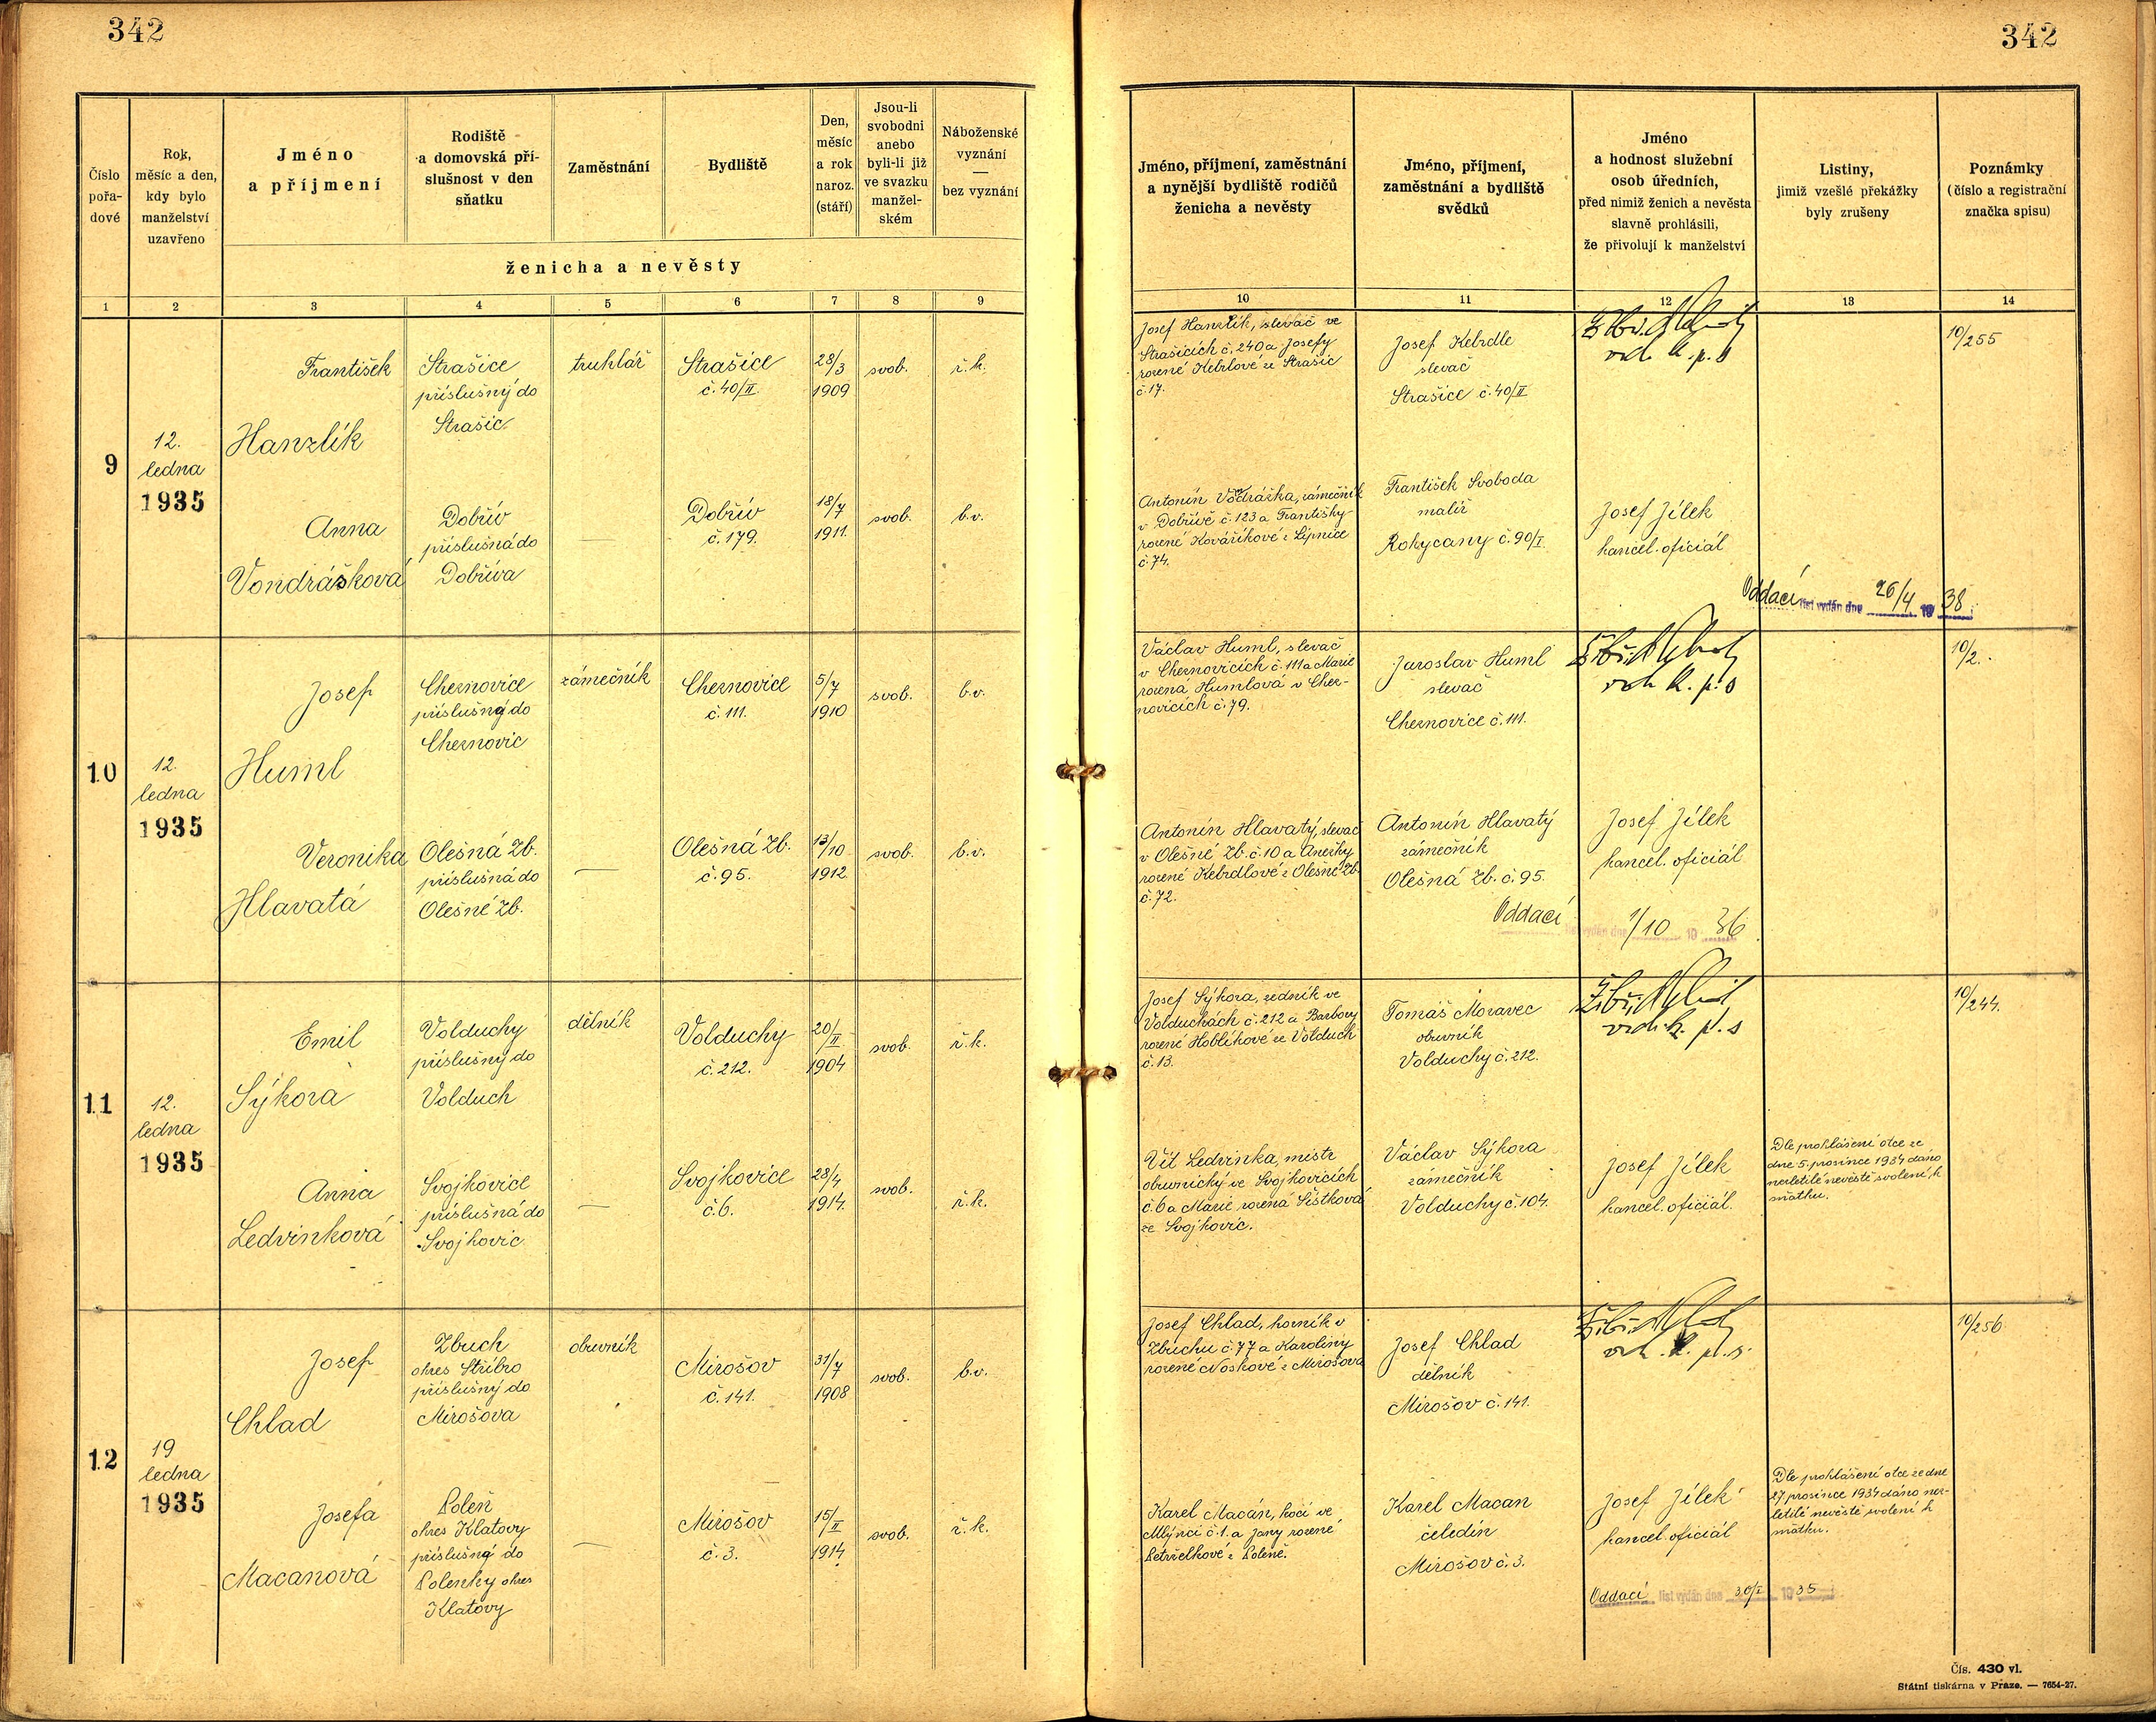 342
342
Číslo
pořa-
dové
Rok,
měsíc a den,
kdy bylo
manželství
uzavřeno
Jméno
a příjmení
Rodiště
a domovská pří-
slušnost v den
sňatku
Zaměstnání
Bydliště
Den,
měsíc
a rok
naroz.
(stáří)
Jsou-li
svobodni
anebo
byli-li již
ve svazku
manžel-
ském
Náboženské
vyznání
—
bez vyznání
ženicha a nevěsty
Jméno, příjmení, zaměstnání
a nynější bydliště rodičů
ženicha a nevěsty
Jméno, příjmení,
zaměstnání a bydliště
svědků
Jméno
a hodnost služební
osob úředních,
před nimiž ženich a nevěsta
slavně prohlásili,
že přivolují k manželství
Listiny,
jimiž vzešlé překážky
byly zrušeny
Poznámky
(číslo a registrační
značka spisu)
1 2 3 4 5 6 7 8 9 10 11 12 13 14
9
12.
ledna
1935
František
Hanzlík
Strašice
příslušný do
Strašic
truhlář
Strašice
č. 40/II.
28/3
1909
svob.
ř.k.
Josef Hanzlík, slevač ve
Strašicích č. 240 a Josefy
rozené Kebrlové ze Strašic
č. 17.
Josef Kebrdle
slevač
Strašice č. 40/II
10/255
Anna
Vondrášková
Dobřív
příslušná do
Dobříva
—
Dobřív
č. 179.
18/7
1911.
svob.
b.v.
Antonín Vondráška, zámečník
v Dobřívě č. 123 a Františky
rozené Kováříkové z Lipnice
č. 74.
František Svoboda
malíř
Rokycany č. 90/I.
Josef Jílek
kancel. oficiál
Oddací list vydán dne 26/4 1938
10
12.
ledna
1935
Josef
Huml
Cheznovice
příslušný do
Cheznovic
zámečník
Cheznovice
č. 111.
5/7
1910
svob.
b.v.
Václav Huml, slevač
v Cheznovicích č. 111 a Marie
rozená Humlová v Chez-
novicích č. 79.
Jaroslav Huml
slevač
Cheznovice č. 111.
10/2.
Veronika
Hlavatá
Olešná Zb.
příslušná do
Olešné Zb.
—
Olešná Zb.
č. 95.
13/10
1912
svob.
b.v.
Antonín Hlavatý, slevač
v Olešné Zb. č. 10 a Anežky
rozené Kebrdlové z Olešné Zb.
č. 72.
Antonín Hlavatý
zámečník
Olešná Zb. č. 95.
Josef Jílek
kancel. oficiál
Oddací list vydán dne 1/10 1936
11
12.
ledna
1935
Emil
Sýkora
Volduchy
příslušný do
Volduch
dělník
Volduchy
č. 212.
20/II
1904
svob.
ř.k.
Josef Sýkora, zedník ve
Volduchách č. 212 a Barbory
rozené Hoblíkové ze Volduch
č. 13.
Tomáš Moravec
obuvník
Volduchy č. 212.
10/244.
Anna
Ledvinková
Svojkovice
příslušná do
Svojkovic
—
Svojkovice
č. 6.
28/4
1914.
svob.
ř.k.
Vít Ledvinka, mistr
obuvnický ve Svojkovicích
č. 6 a Marie rozená Šístková
ze Svojkovic.
Václav Sýkora
zámečník
Volduchy č. 104.
Josef Jílek
kancel. oficiál.
Dle prohlášení otce ze
dne 5. prosince 1934 dáno
nezletilé nevěstě svolení k
sňatku.
12
19
ledna
1935
Josef
Chlad
Zbuch
okres Stříbro
příslušný do
Mirošova
obuvník
Mirošov
č. 141.
31/7
1908
svob.
b.v.
Josef Chlad, horník v
Zbuchu č. 77 a Karoliny
rozené Noskové z Mirošova
Josef Chlad
dělník
Mirošov č. 141.
10/256
Josefa
Macanová
Poleň
okres Klatovy
příslušná do
Polenky okres
Klatovy
—
Mirošov
č. 3.
15/II
1914
svob.
ř.k.
Karel Macán, kočí ve
Mlýnci č. 1. a Jany rozené
Petrželkové z Poleně.
Karel Macan
čeledín
Mirošov č. 3.
Josef Jílek
kancel. oficiál
Dle prohlášení otce ze dne
27 prosince 1934 dáno nez-
letilé nevěstě svolení k
sňatku.
Oddací list vydán dne 30/I 1935
Čís. 430 vl.
Státní tiskárna v Praze. — 7654-27.